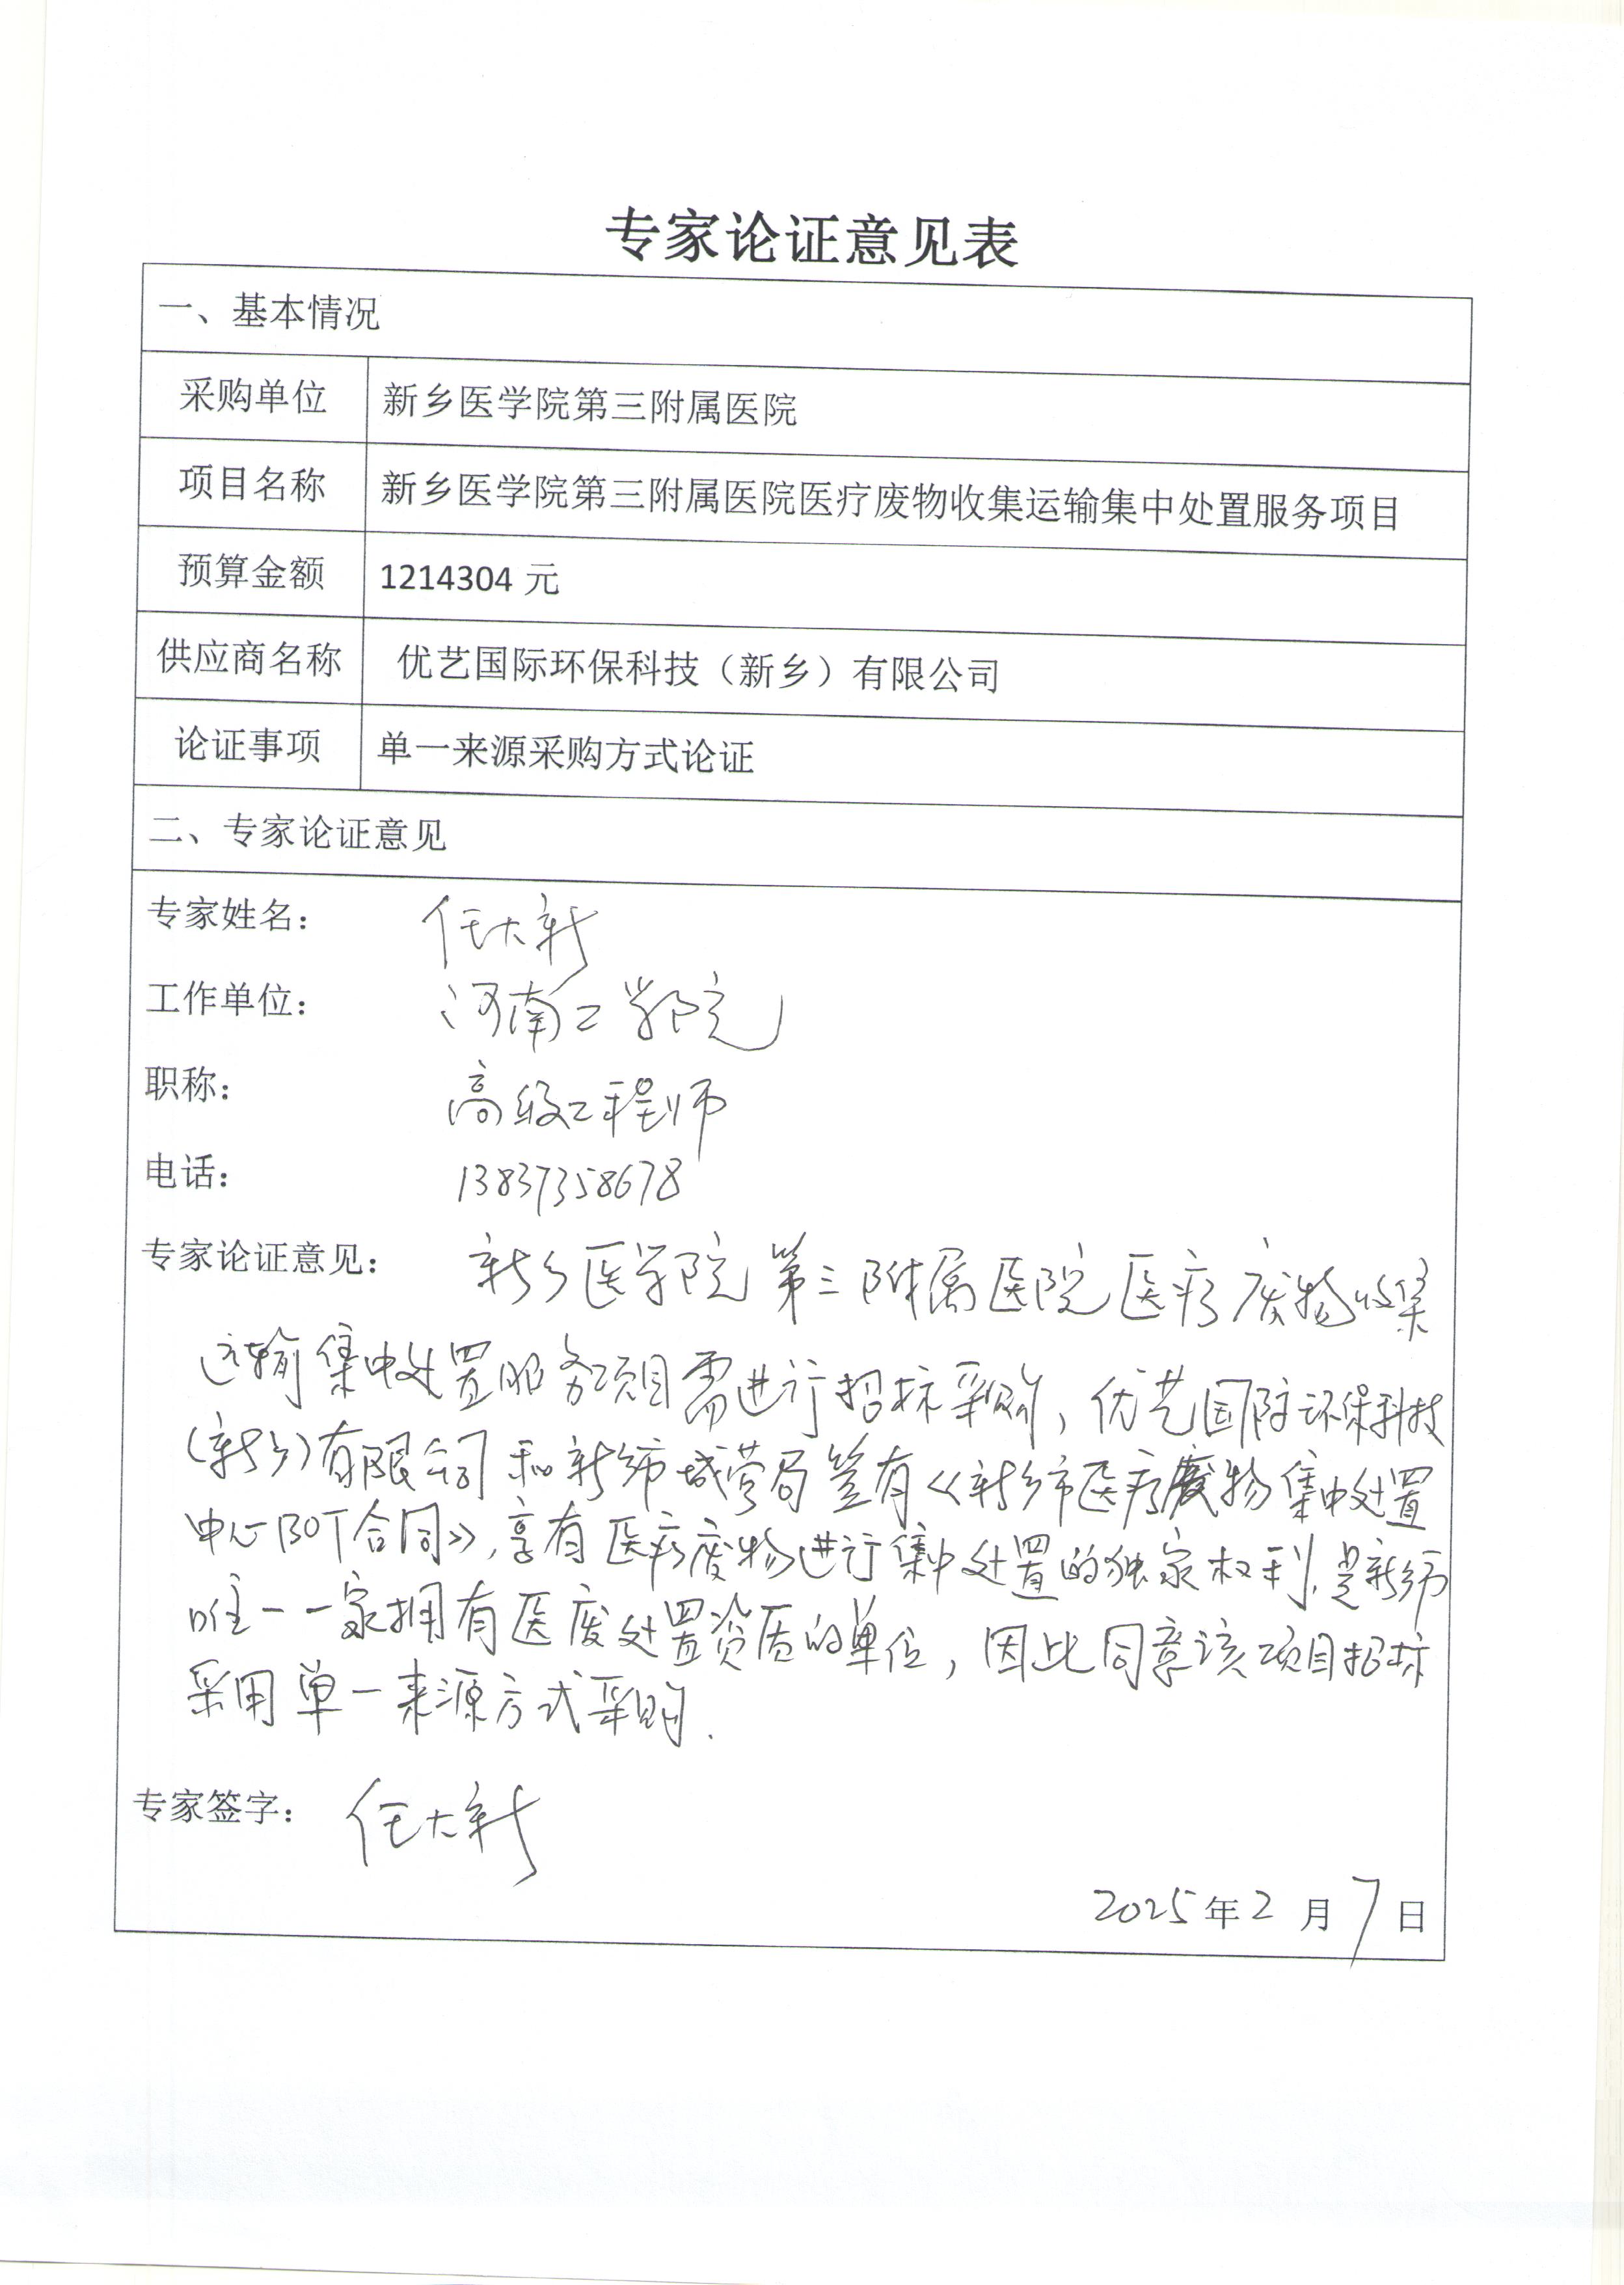 专家论证意见表
一、基本情况
采购单位 新乡医学院第三附属医院
项目名称 新乡医学院第三附属医院医疗废物收集运输集中处置服务项目
预算金额 1214304 元
供应商名称 优艺国际环保科技（新乡）有限公司
论证事项 单一来源采购方式论证
二、专家论证意见
专家姓名： 任大新
工作单位： 河南工学院
职称： 高级工程师
电话： 13837358678
专家论证意见： 新乡医学院第三附属医院医疗废物收集
运输集中处置服务项目需进行招标采购，优艺国际环保科技
（新乡）有限公司和新乡市城管局签有《新乡市医疗废物集中处置
中心BOT合同》，享有医疗废物进行集中处置的独家权利，是新乡市
唯一一家拥有医废处置资质的单位，因此同意该项目招标
采用单一来源方式采购.
专家签字： 任大新
2025年2月7日